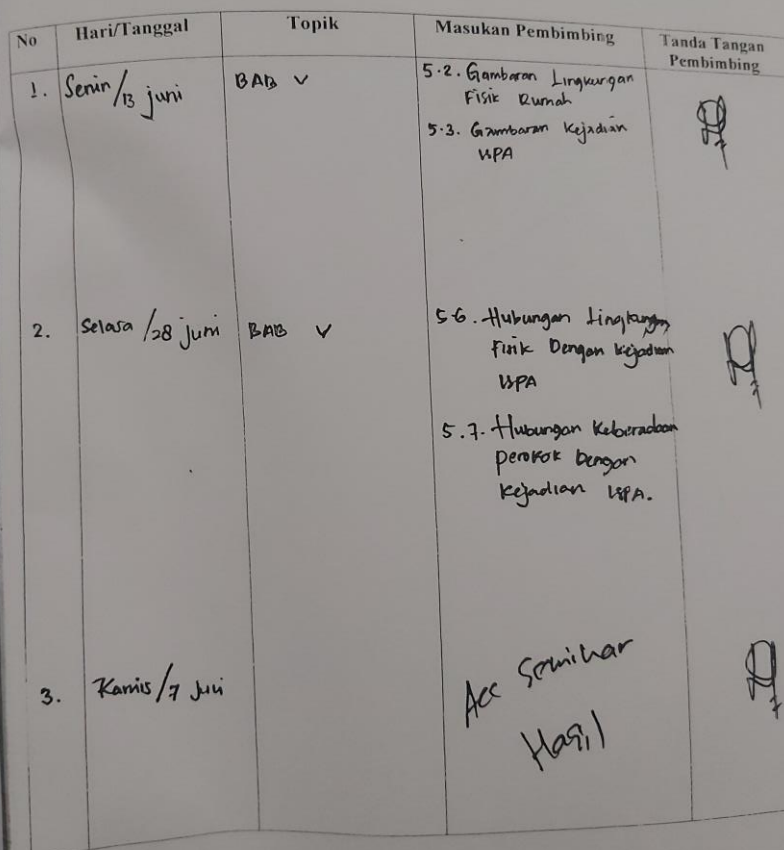 No Hari/Tanggal Topik Masukan Pembimbing Tanda Tangan Pembimbing
1. Senin/13 juni BAB V 5.2. Gambaran Lingkungan
Fisik Rumah
5.3. Gambaran Kejadian
ISPA
2. Selasa/28 juni BAB V 5.6. Hubungan Lingkungan
Fisik Dengan kejadian
ISPA
5.7. Hubungan Keberadaan
perokok Dengan
Kejadian ISPA.
3. Kamis/7 Juli Acc Seminar
Hasil